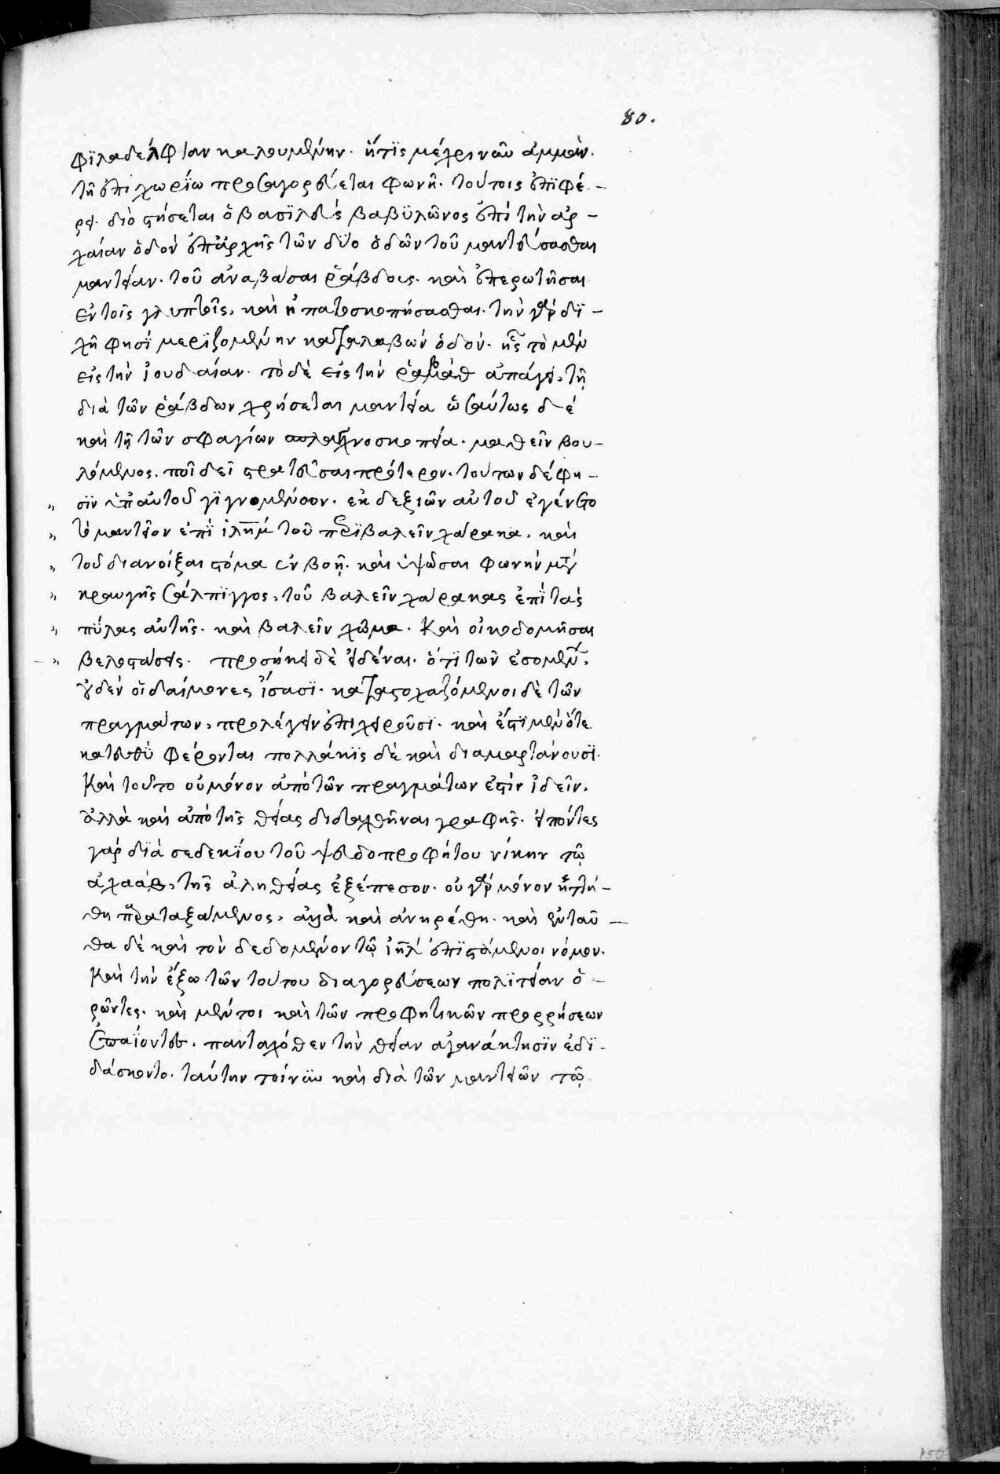 80.
φϊλαδελφίαν καλουμένην. ἥτϊς μέχρι νῦν ἀμμὰν.
τῆ ἐπιχωρΐω προσαγορεύεται φωνῆ. τούτοις ἐπϊφέ-
ρει. διὸ στήσεται ὁ βασϊλεὺς βαβϋλῶνος ἐπὶ τὴν ἀρ-
χαίαν ὁδὸν ἐπ' ἀρχῆς τῶν δύο ὁδῶν τοῦ μαντεύσασθαι
μαντείαν. τοῦ ἀναβάσαι ῥάβδοις. καὶ ἐπερωτῆσαι
ἐν τοῖς γλυπτοῖς. καὶ ἡπατοσκοπήσασθαι. τὴν γὰρ δϊ-
χῆ φησὶ μερϊζομένην καταλαβὼν ὁδόν. ἧς τὸ μὲν
εἰς τὴν ἰουδαίαν. τὸ δὲ εἰς τὴν ῥαβὰθ ἀπάγει. τῆ
διὰ τῶν ῥάβδων χρήσεται μαντεία ὡσαύτως δὲ
καὶ τῆ τῶν σφαγίων σπλαγχνοσκοπεία. μαθεῖν βου-
λόμενος. ποῖ δεῖ στρατεῦσαι πρότερον. τούτων δέ φη-
" σϊν ὑπ' αὐτοῦ γϊγνομένων. ἐκ δεξιῶν αὐτοῦ ἐγένετο
" τὸ μαντεῖον ἐπὶ ἱλημ τοῦ περϊβαλεῖν χάρακα. καὶ
" τοῦ διανοίξαι στόμα ἐν βοῆ. καὶ ὑψῶσαι φωνὴν μετὰ
" κραυγῆς σάλπϊγγος. τοῦ βαλεῖν χάρακας ἐπὶ τὰς
" πύλας αὐτῆς. καὶ βαλεῖν χῶμα. καὶ οἰκοδομῆσαι
" βελοστάσεις. προσήκει δὲ εἰδέναι. ὅτι τῶν ἐσομένων
οὐδὲν οἱ δαίμονες ἴσασϊ. καταστοχαζόμενοι δὲ τῶν
πραγμάτων. προλέγειν ἐπιχειροῦσι. καὶ ἔστι μὲν ὅτε
κατευθὺ φέρονται πολλάκϊς δὲ καὶ διαμαρτάνουσϊ.
καὶ τοῦτο οὐ μόνον ἀπὸ τῶν πραγμάτων ἐστὶν ἰδεῖν.
ἀλλὰ καὶ ἀπὸ τῆς θείας διδαχθῆναι γραφῆς. εἰπόντες
γὰρ δϊὰ σεδεκίου τοῦ ψευδοπροφήτου νίκην τῶ
ἀχαάβ. τῆς ἀληθείας ἐξέπεσον. οὐ γὰρ μόνον ἡττή-
θη παραταξάμενος. ἀλλὰ καὶ ἀνηρέθη. καὶ ἐνταῦ-
θα δὲ καὶ τὸν δεδομένον τῶ ἰηλ ἐπϊστάμενοι νόμον.
καὶ τὴν ἔξω τῶν τούτου διαγορεύσεων πολϊτείαν ὁ-
ρῶντες. καὶ μέντοι καὶ τῶν προφητικῶν προρρήσεων
ἐπαΐοντες. πανταχόθεν τὴν θείαν ἀγανάκτησϊν ἐδϊ-
δάσκοντο. ταύτην τοίνυν καὶ διὰ τῶν μαντειῶν τῶ